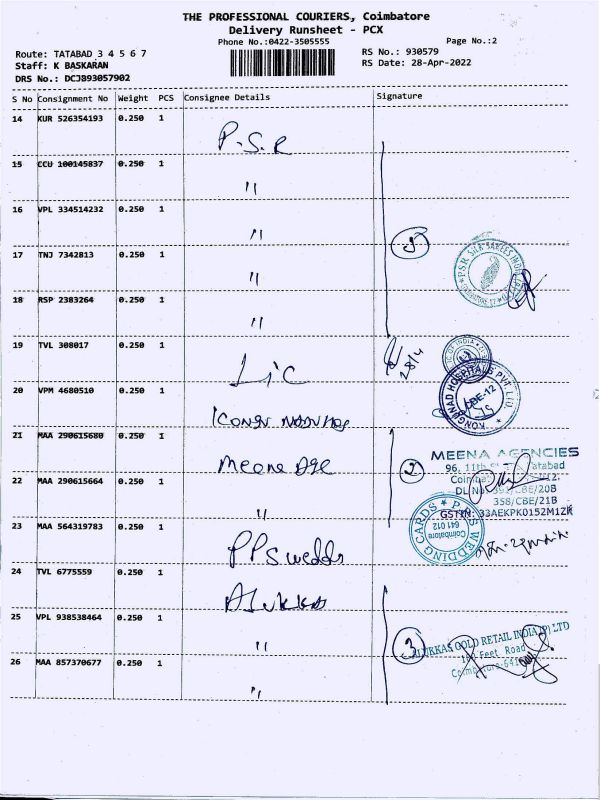 THE PROFESSIONAL COURIERS, Coimbatore
Delivery Runsheet - PCX
Phone No.:0422-3505555
Page No.:2
Route: TATABAD 3 4 5 6 7
RS No.: 930579
Staff: K BASKARAN
RS Date: 28-Apr-2022
DRS No.: DCJ893057902
S No Consignment No Weight PCS Consignee Details Signature
14 KUR 526354193 0.250 1 P.S.R
15 CCU 100145837 0.250 1 "
16 VPL 334514232 0.250 1 "
17 TNJ 7342813 0.250 1 "
18 RSP 2383264 0.250 1 "
5
P.S.R SILK SAREES INDIA
19 TVL 308017 0.250 1 LIC
28/4
20 VPM 4680510 0.250 1
KONGUNAD HOSPITALS PVT. LTD.
CBE-12
21 MAA 290615680 0.250 1 Meena Age
22 MAA 290615664 0.250 1 "
2
MEENA AGENCIES
96, 11th Tatabad
358/CBE/21B
GSTIN: 33AEKPK0152M1ZK
23 MAA 564319783 0.250 1 PPS wedds
WEDDING CARDS
Coimbatore
641 012
24 TVL 6775559 0.250 1 Alukkas
25 VPL 938538464 0.250 1 "
26 MAA 857370677 0.250 1 "
3
ALUKKAS GOLD RETAIL INDIA (P) LTD
Feet Road